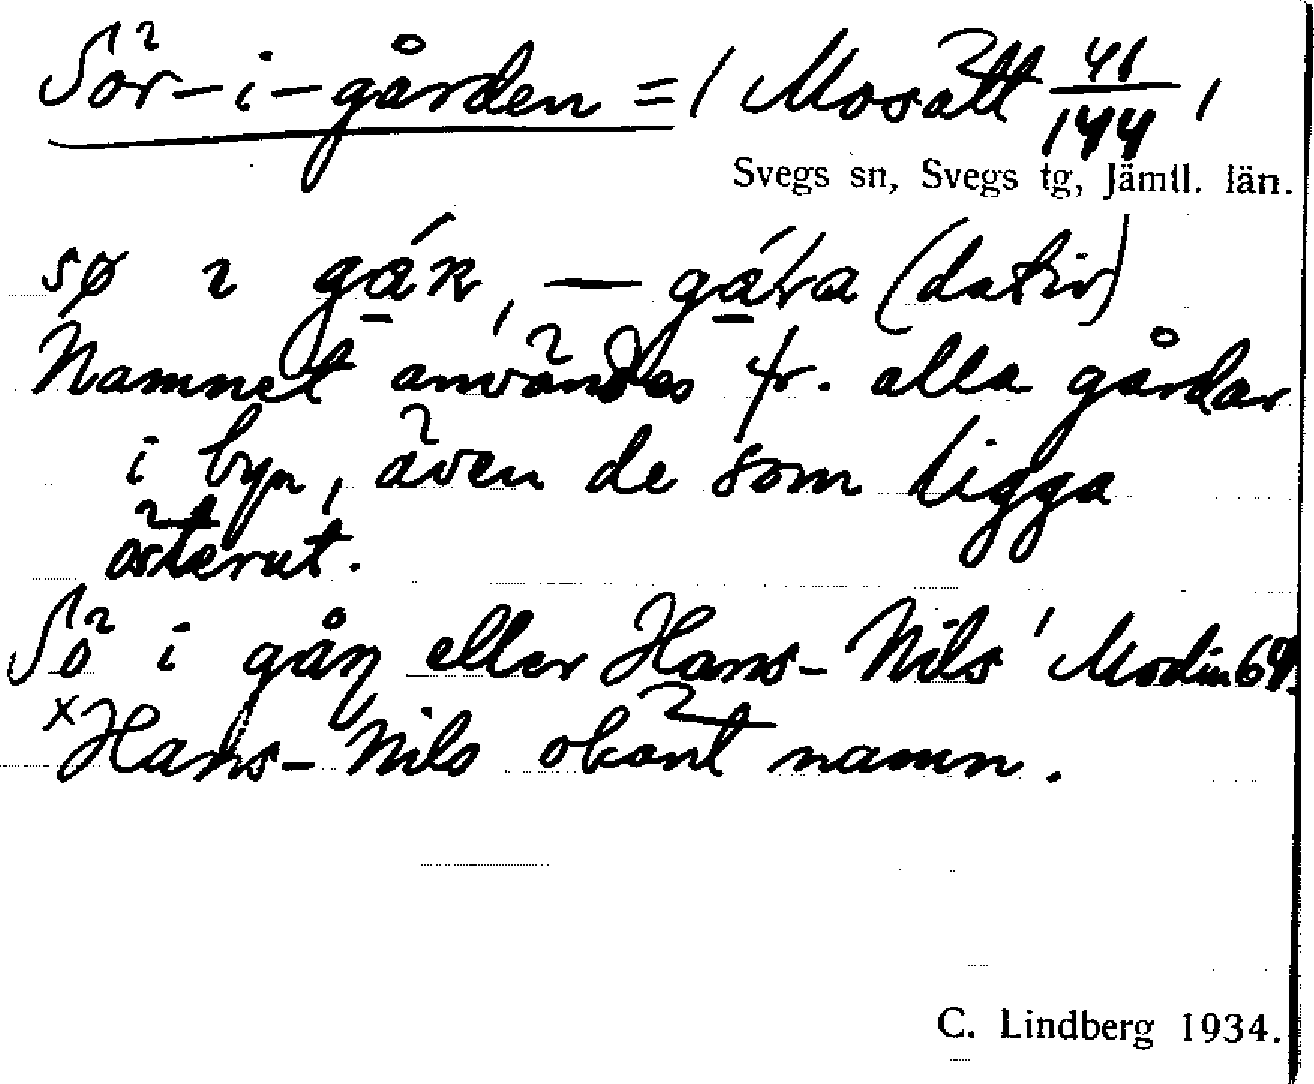 Sör-i-gården = ( Mosätt 41/144 )
Svegs sn, Svegs tg, Jämtl. län.
sø i (dativ)
Namnet användes fr. alla gårdar
i byn, även de som ligga
österut.
Sö i gåŋ eller Hans-Nils' Modin 69.
x Hans-Nils okänt namn.
C. Lindberg 1934.